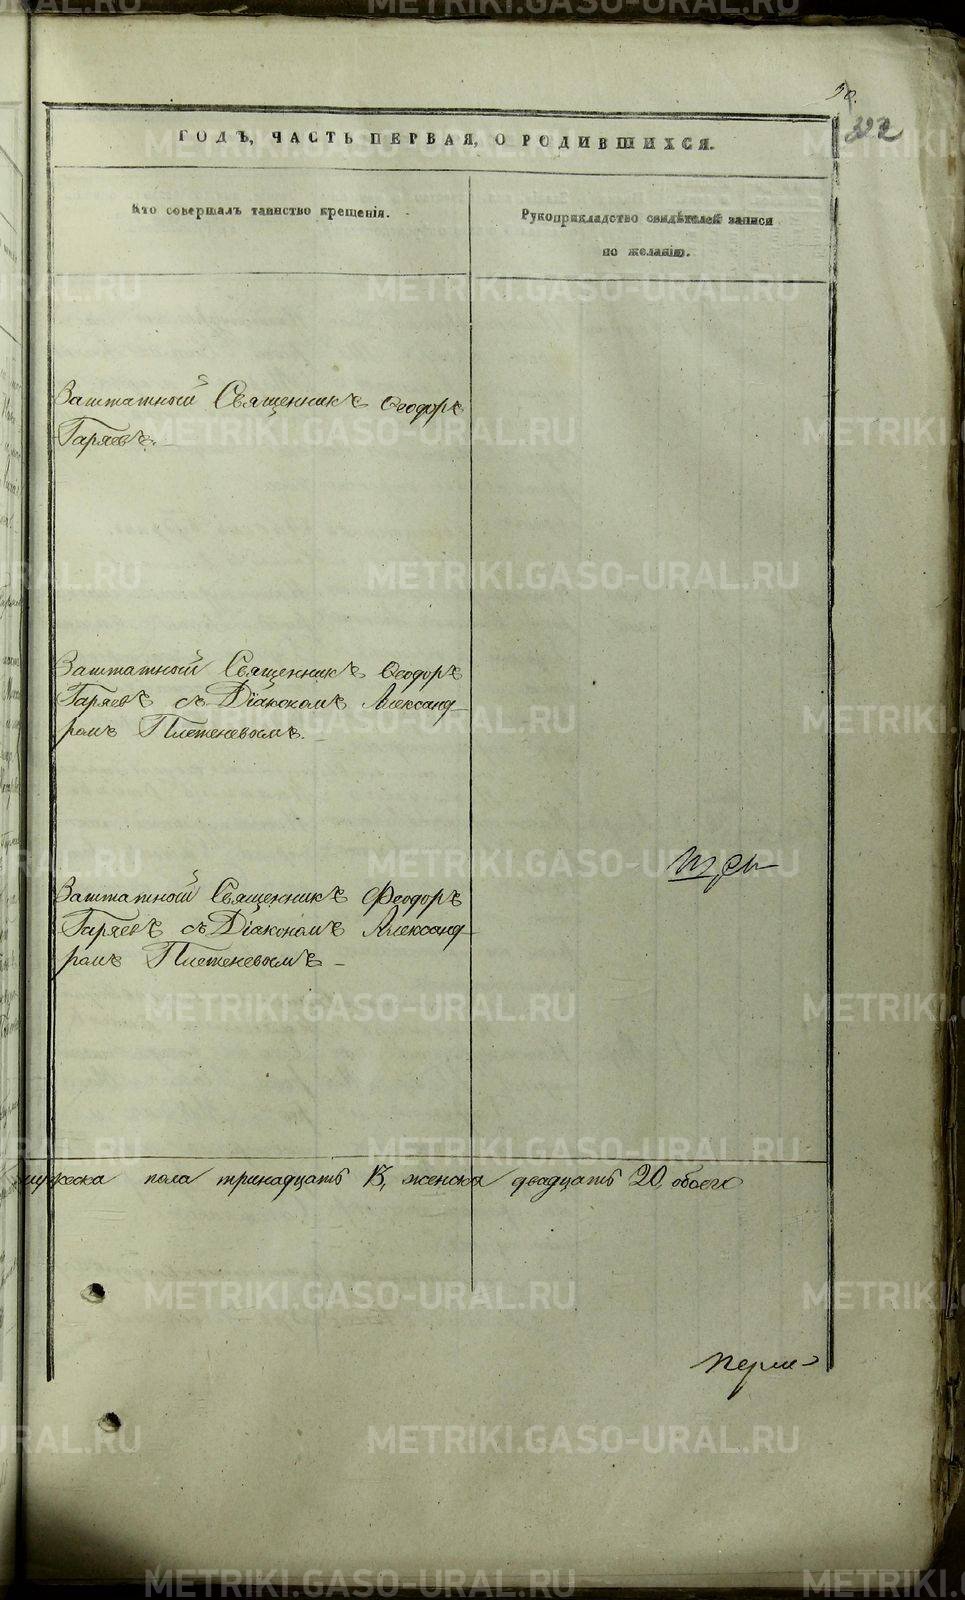 50.
ГОДЪ, ЧАСТЬ ПЕРВАЯ, О РОДИВШИХСЯ.
Кто совершалъ таинство крещенія.
Рукоприкладство свидѣтелей записи
по желанію.
Заштатной Священникъ Ѳеодоръ
Гаряевъ.
Заштатной Священникъ Ѳеодоръ
Гаряевъ съ Діакономъ Александ-
ромъ Плетеневымъ.
Заштатной Священникъ Феодоръ
Гаряевъ съ Діакономъ Александ-
ромъ Плетеневымъ
мужеска пола тринадцать 13, женска двадцать 20, обоего
METRIKI.GASO-URAL.RU